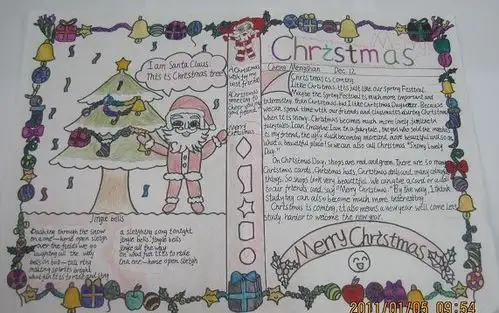 I am Santa Claus
This is Christmas tree
Jingle bells
Dashing through the snow
on a one-horse open sleigh
over the fields we go
laughing all the way
bells on bob-tail ring
making spirits bright
what fun it is to ride and sing
a sleighing song tonight
jingle bells jingle bells
jingle all the way
on what fun it is to ride
on a one-horse open sleigh
Christmas
Cheng Mengshan Dec. 12
Christmas is coming.
I like Christmas. It is just like our Spring Festival.
the Spring Festival is much more important and
interesting than Christmas, but I like Christmas Day better. Because
we can spend time with our friends and classmates during Christmas
when it is snowy. Christmas becomes much more lovely, just like
fairy tales. I can imagine I am in a fairy tale, the girl who sold the matches
is my friend, the ugly duckling becomes
what a beautiful place! So we can also call Christmas "Snowy Lovely
Day."
On Christmas Day, shops are red and green. There are so many
Christmas cards, Christmas hats, Christmas dolls and many other
things. So shops look very beautiful. We can give a card or a
to our friends and say "Merry Christmas." By the way, I think
studying can also become much more interesting.
Christmas is coming, it also means a new year will come. Lets
study harder to welcome the new year.
Merry Christmas
2011/01/05 09:54